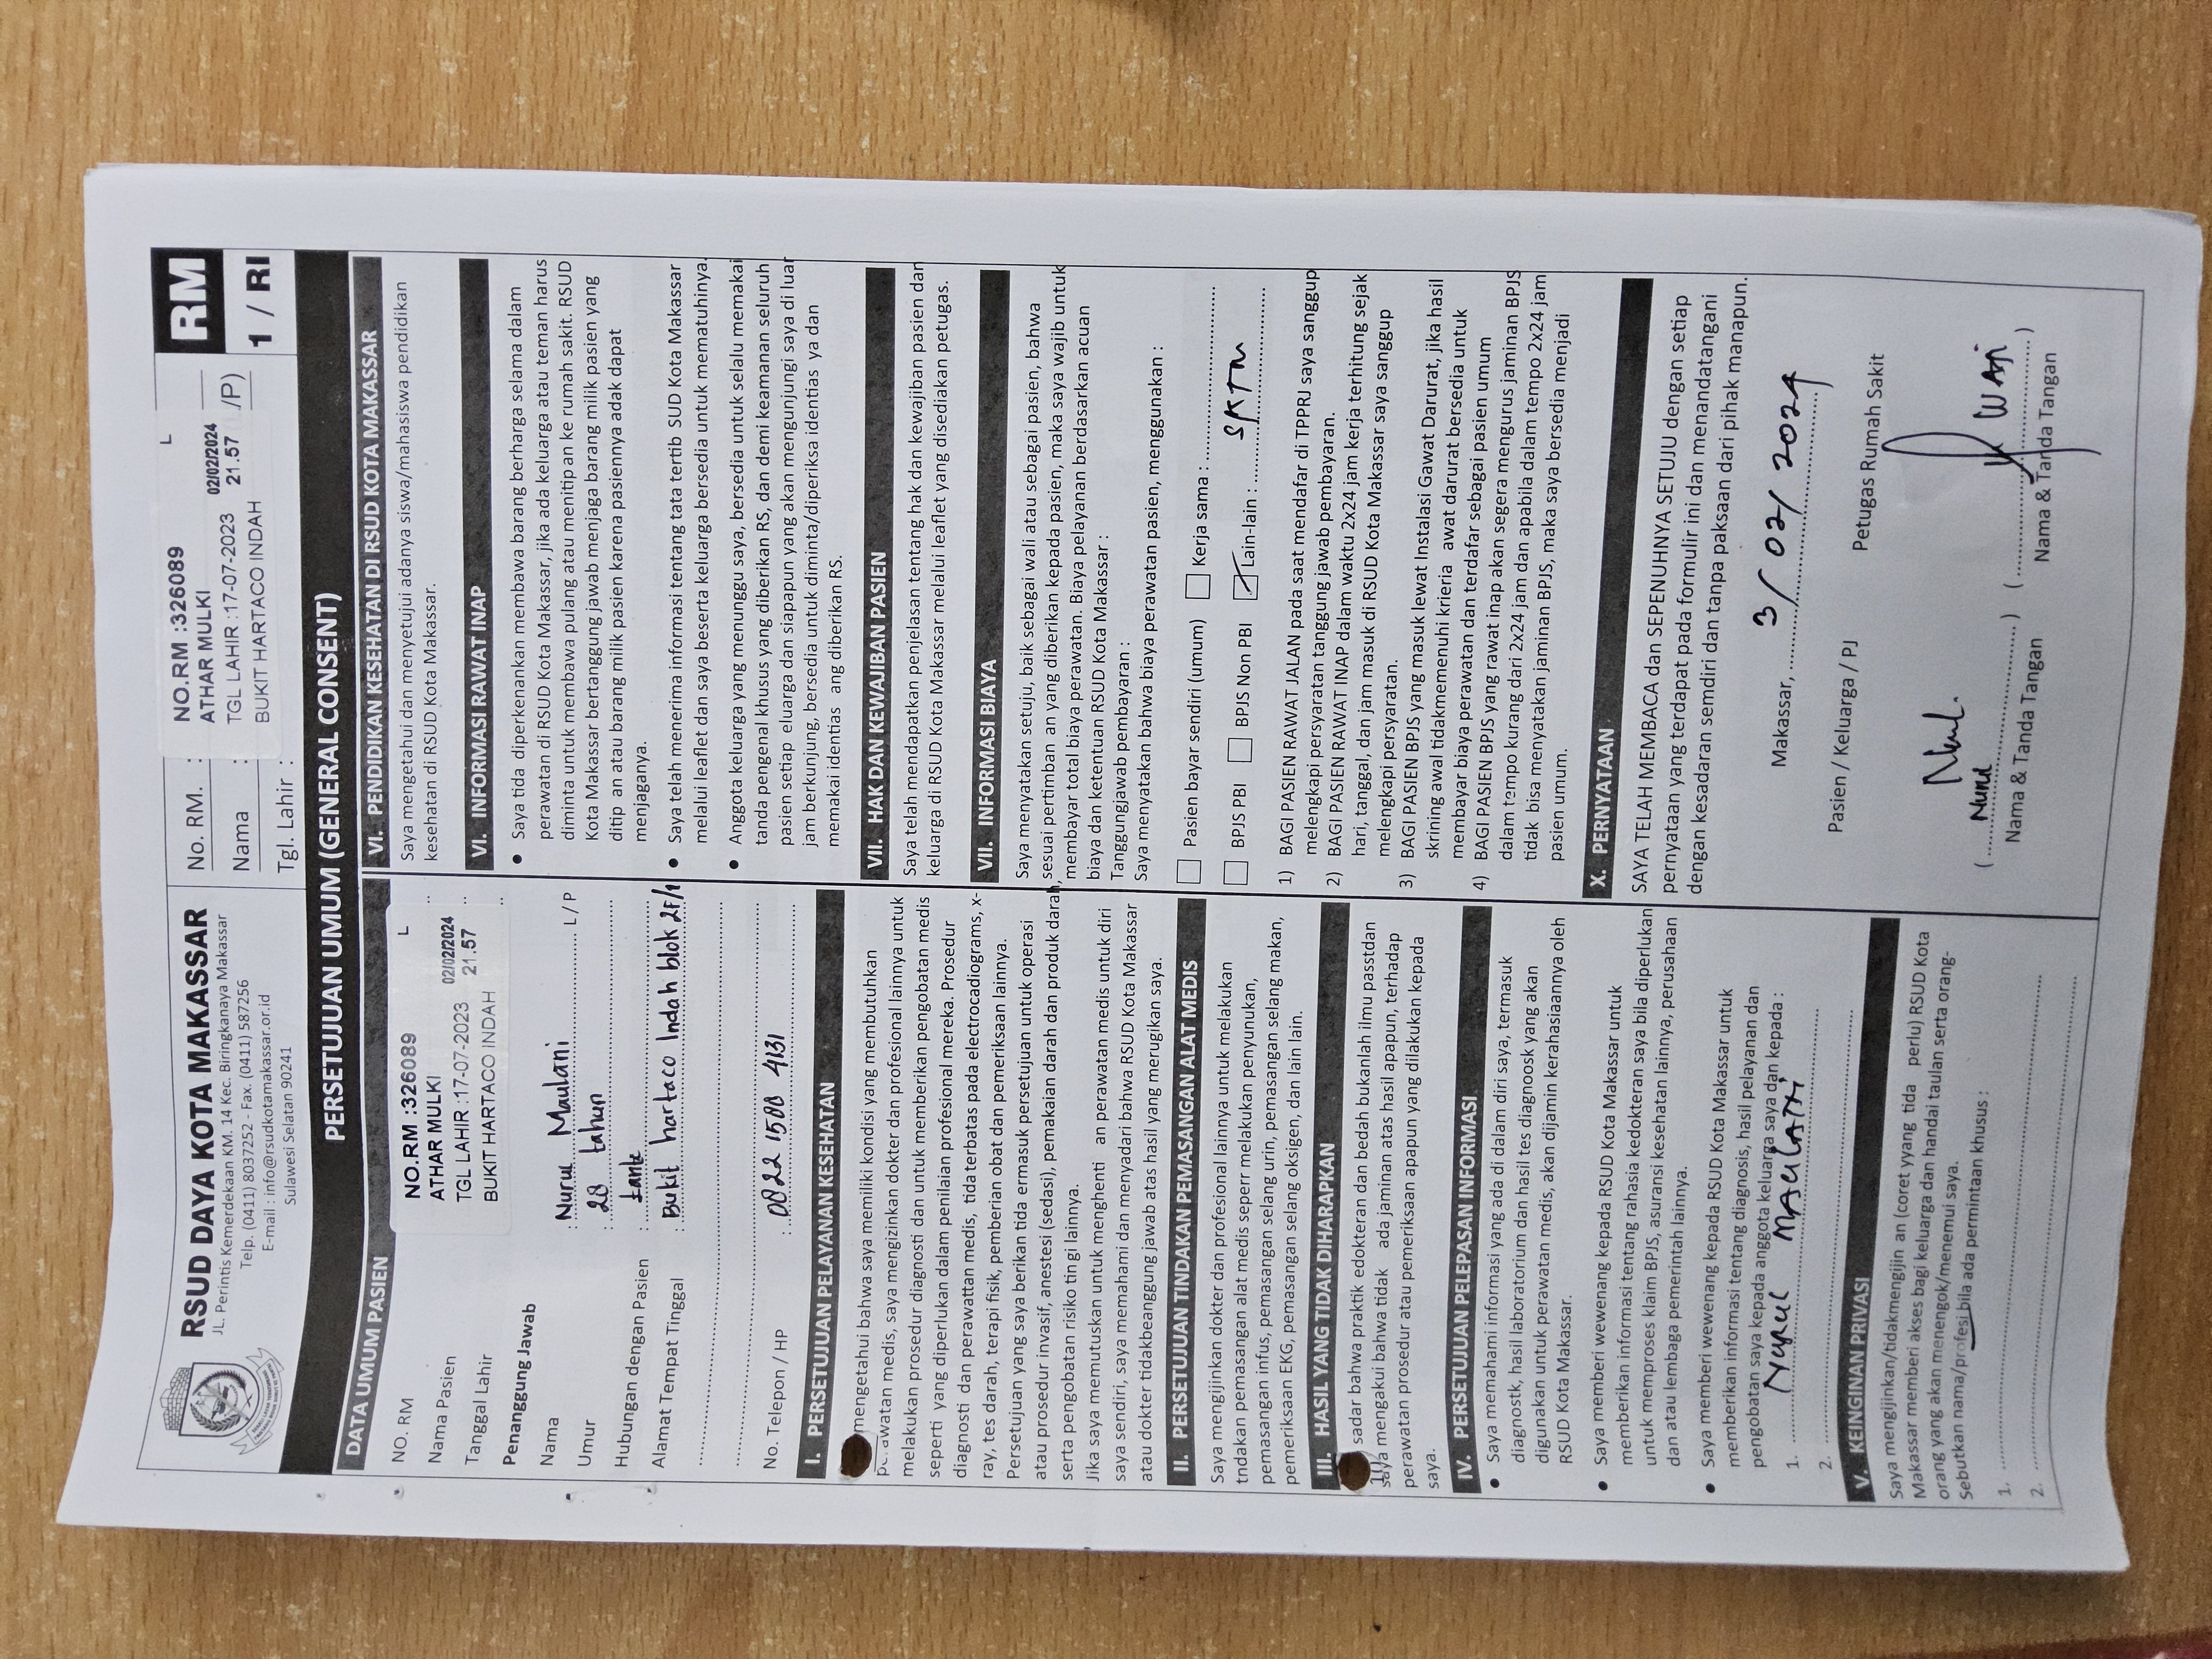 RSUD DAYA KOTA MAKASSAR
JL. Perintis Kemerdekaan KM. 14 Kec. Biringkanaya Makassar
Telp. (0411) 8037252 - Fax. (0411) 587256
E-mail : info@rsudkotamakassar.or.id
Sulawesi Selatan 90241
No. RM. :
Nama :
Tgl. Lahir :
NO.RM :326089 L
ATHAR MULKI
TGL LAHIR :17-07-2023 02/02/2024 21.57
BUKIT HARTACO INDAH
/P)
RM
1 / RI
PERSETUJUAN UMUM (GENERAL CONSENT)
DATA UMUM PASIEN
NO. RM
Nama Pasien
Tanggal Lahir
NO.RM :326089 L
ATHAR MULKI
TGL LAHIR :17-07-2023 02/02/2024 21.57
BUKIT HARTACO INDAH
Penanggung Jawab
Nama : Nurul Maulani L / P
Umur : 28 tahun
Hubungan dengan Pasien : tante
Alamat Tempat Tinggal : Bukit hartaco Indah blok 2F/1
No. Telepon / HP : 0822 1588 4131
I. PERSETUJUAN PELAYANAN KESEHATAN
mengetahui bahwa saya memiliki kondisi yang membutuhkan
perawatan medis, saya mengizinkan dokter dan profesional lainnya untuk
melakukan prosedur diagnosti dan untuk memberikan pengobatan medis
seperti yang diperlukan dalam penilaian profesional mereka. Prosedur
diagnosti dan perawattan medis, tida terbatas pada electrocadiograms, x-
ray, tes darah, terapi fisik, pemberian obat dan pemeriksaan lainnya.
Persetujuan yang saya berikan tida ermasuk persetujuan untuk operasi
atau prosedur invasif, anestesi (sedasi), pemakaian darah dan produk darah,
serta pengobatan risiko tin gi lainnya.
Jika saya memutuskan untuk menghenti an perawatan medis untuk diri
saya sendiri, saya memahami dan menyadari bahwa RSUD Kota Makassar
atau dokter tidakbeanggung jawab atas hasil yang merugikan saya.
II. PERSETUJUAN TINDAKAN PEMASANGAN ALAT MEDIS
Saya mengijinkan dokter dan profesional lainnya untuk melakukan
tndakan pemasangan alat medis seperr melakukan penyunukan,
pemasangan infus, pemasangan selang urin, pemasangan selang makan,
pemeriksaan EKG, pemasangan selang oksigen, dan lain lain.
III. HASIL YANG TIDAK DIHARAPKAN
sadar bahwa praktik edokteran dan bedah bukanlah ilmu passtdan
saya mengakui bahwa tidak ada jaminan atas hasil apapun, terhadap
perawatan prosedur atau pemeriksaan apapun yang dilakukan kepada
saya.
IV. PERSETUJUAN PELEPASAN INFORMASI
• Saya memahami informasi yang ada di dalam diri saya, termasuk
diagnostk, hasil laboratorium dan hasil tes diagnoosk yang akan
digunakan untuk perawatan medis, akan dijamin kerahasiaannya oleh
RSUD Kota Makassar.
• Saya memberi wewenang kepada RSUD Kota Makassar untuk
memberikan informasi tentang rahasia kedokteran saya bila diperlukan
untuk memproses klaim BPJS, asuransi kesehatan lainnya, perusahaan
dan atau lembaga pemerintah lainnya.
• Saya memberi wewenang kepada RSUD Kota Makassar untuk
memberikan informasi tentang diagnosis, hasil pelayanan dan
pengobatan saya kepada anggota keluarga saya dan kepada :
1. Nurul MAULANI
2.
V. KEINGINAN PRIVASI
Saya mengijinkan/tidakmengijin an (coret yyang tida perlu) RSUD Kota
Makassar memberi akses bagi keluarga dan handai taulan serta orang-
orang yang akan menengok/menemui saya.
Sebutkan nama/profesi bila ada permintaan khusus :
1.
2.
VI. PENDIDIKAN KESEHATAN DI RSUD KOTA MAKASSAR
Saya mengetahui dan menyetujui adanya siswa/mahasiswa pendidikan
kesehatan di RSUD Kota Makassar.
VI. INFORMASI RAWAT INAP
• Saya tida diperkenankan membawa barang berharga selama dalam
perawatan di RSUD Kota Makassar, jika ada keluarga atau teman harus
diminta untuk membawa pulang atau menitip an ke rumah sakit. RSUD
Kota Makassar bertanggung jawab menjaga barang milik pasien yang
ditip an atau barang milik pasien karena pasiennya adak dapat
menjaganya.
• Saya telah menerima informasi tentang tata tertib SUD Kota Makassar
melalui leaflet dan saya beserta keluarga bersedia untuk mematuhinya.
• Anggota keluarga yang menunggu saya, bersedia untuk selalu memakai
tanda pengenal khusus yang diberikan RS, dan demi keamanan seluruh
pasien setiap eluarga dan siapapun yang akan mengunjungi saya di luar
jam berkunjung, bersedia untuk diminta/diperiksa identias ya dan
memakai identias ang diberikan RS.
VII. HAK DAN KEWAJIBAN PASIEN
Saya telah mendapatkan penjelasan tentang hak dan kewajiban pasien dan
keluarga di RSUD Kota Makassar melalui leaflet yang disediakan petugas.
VII. INFORMASI BIAYA
Saya menyatakan setuju, baik sebagai wali atau sebagai pasien, bahwa
sesuai pertimban an yang diberikan kepada pasien, maka saya wajib untuk
membayar total biaya perawatan. Biaya pelayanan berdasarkan acuan
biaya dan ketentuan RSUD Kota Makassar :
Tanggungjawab pembayaran :
Saya menyatakan bahwa biaya perawatan pasien, menggunakan :
Pasien bayar sendiri (umum) Kerja sama :
BPJS PBI BPJS Non PBI Lain-lain : SKTM
1) BAGI PASIEN RAWAT JALAN pada saat mendafar di TPPRJ saya sanggup
melengkapi persyaratan tanggung jawab pembayaran.
2) BAGI PASIEN RAWAT INAP dalam waktu 2x24 jam kerja terhitung sejak
hari, tanggal, dan jam masuk di RSUD Kota Makassar saya sanggup
melengkapi persyaratan.
3) BAGI PASIEN BPJS yang masuk lewat Instalasi Gawat Darurat, jika hasil
skrining awal tidakmemenuhi krieria awat darurat bersedia untuk
membayar biaya perawatan dan terdafar sebagai pasien umum
4) BAGI PASIEN BPJS yang rawat inap akan segera mengurus jaminan BPJS
dalam tempo kurang dari 2x24 jam dan apabila dalam tempo 2x24 jam
tidak bisa menyatakan jaminan BPJS, maka saya bersedia menjadi
pasien umum.
X. PERNYATAAN
SAYA TELAH MEMBACA dan SEPENUHNYA SETUJU dengan setiap
pernyataan yang terdapat pada formulir ini dan menandatangani
dengan kesadaran semdiri dan tanpa paksaan dari pihak manapun.
Makassar, 3/02/2024
Pasien / Keluarga / PJ Petugas Rumah Sakit
(Nurul) (WAR)
Nama & Tanda Tangan Nama & Tanda Tangan